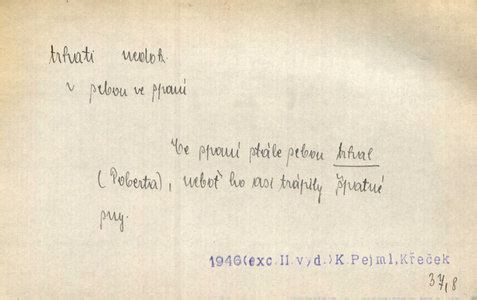 trhati nedok.
v sebou ve spaní
Ve spaní stále sebou trhal
(Poberta), neboť ho asi trápily špatné
sny.
1946(exc.II.vyd.)K.Pejml,Křeček
37,8